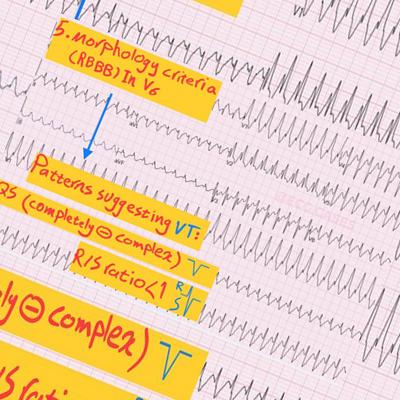 5. Morphology criteria
(RBBB) In V6
Patterns suggesting VT:
QS (completely ⊖ complex)
R/S ratio <1 R
S
ely ⊖ complex)